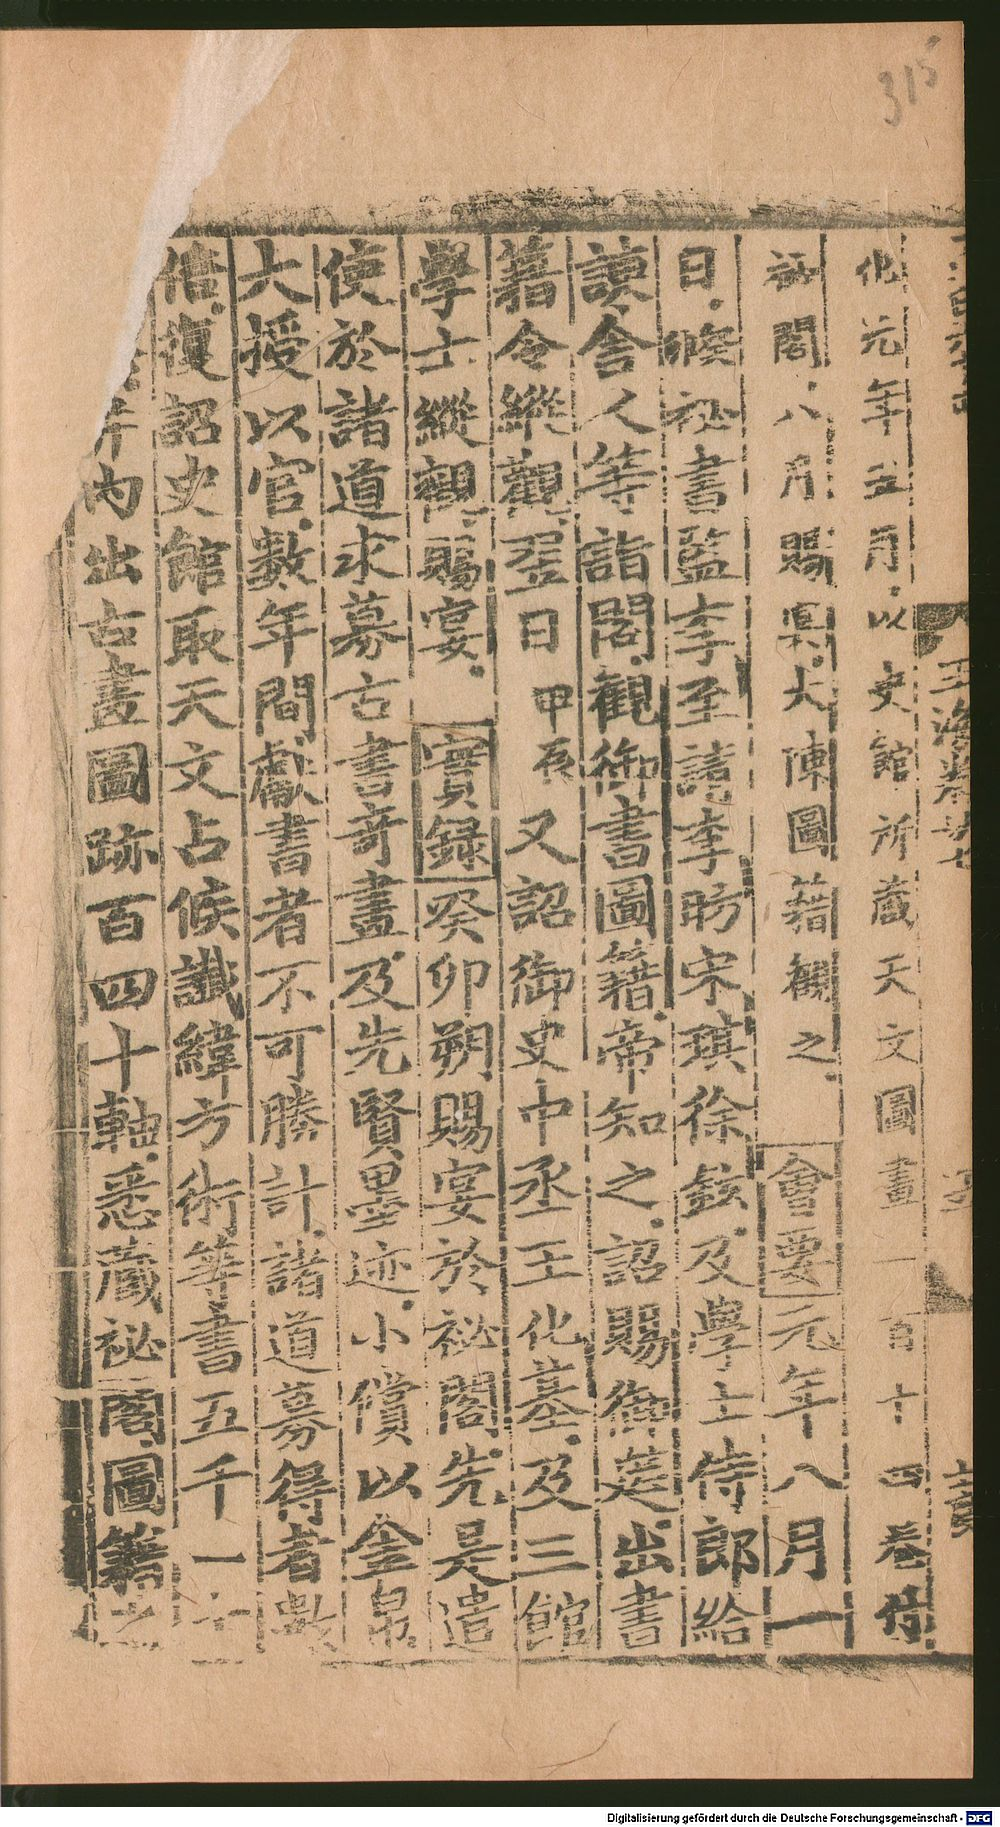 315
化元年五月以史館所藏天文圖畫一百十四卷付
祕閣八月賜息大陳圖籍觀之
會要元年八月一
日喚祕書監李至請李昉宋琪徐鉉及學士侍郎給
諫舍人等詣閣觀御書圖籍帝知之詔賜御筵出書
籍令縱觀翌日甲辰又詔御史中丞王化基及三館
學士縱觀賜宴實錄癸卯朔賜宴於祕閣先是遣
使於諸道求募古書奇畫及先賢墨迹小償以金帛
大授以官數年間獻書者不可勝計諸道募得者數
倍復詔史館取天文占候讖緯方術等書五千一十
內出古畫圖跡百四十軸悉藏祕閣圖籍之
玉海卷
Digitalisierung gefördert durch die Deutsche Forschungsgemeinschaft - DFG